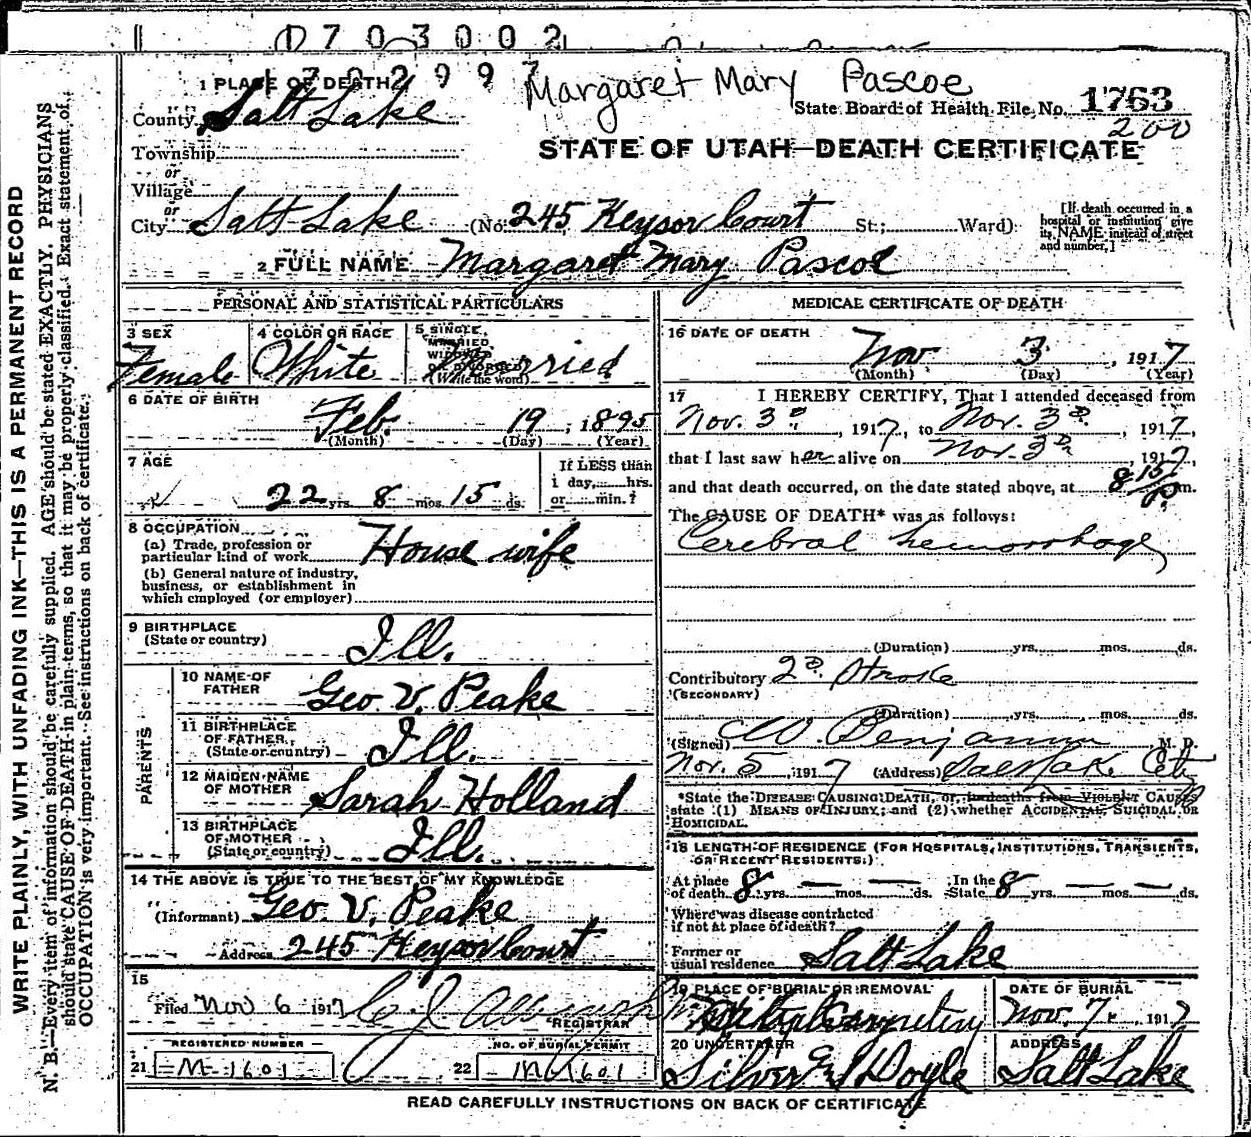 0703002
1702997
Margaret Mary Pascoe
1 PLACE OF DEATH
County Salt Lake
State Board of Health File No. 1763
200
Township
or
Village
or
STATE OF UTAH—DEATH CERTIFICATE
City Salt Lake (No. 245 Keysor Court St.; Ward)
[If death occurred in a
hospital or institution give
its NAME instead of street
and number.]
2 FULL NAME Margaret Mary Pascoe
PERSONAL AND STATISTICAL PARTICULARS
3 SEX
Female
4 COLOR OR RACE
White
5 SINGLE,
MARRIED,
WIDOWED
OR DIVORCED
(Write the word)
Married
6 DATE OF BIRTH
Feb. 19, 1895
(Month) (Day) (Year)
7 AGE
22 yrs. 8 mos. 15 ds.
If LESS than
1 day, hrs.
or min.?
8 OCCUPATION
(a) Trade, profession or
particular kind of work House wife
(b) General nature of industry,
business, or establishment in
which employed (or employer)
9 BIRTHPLACE
(State or country) Ill.
PARENTS
10 NAME OF
FATHER Geo V. Peake
11 BIRTHPLACE
OF FATHER
(State or country) Ill.
12 MAIDEN NAME
OF MOTHER Sarah Holland
13 BIRTHPLACE
OF MOTHER
(State or country) Ill.
14 THE ABOVE IS TRUE TO THE BEST OF MY KNOWLEDGE
(Informant) Geo. V. Peake
Address 245 Keysor Court
15
Filed Nov 6 1917 C. J.
REGISTRAR
REGISTERED NUMBER
21 M-1601
NO. OF BURIAL PERMIT
22 M1601
MEDICAL CERTIFICATE OF DEATH
16 DATE OF DEATH
Nov 3, 1917
(Month) (Day) (Year)
17 I HEREBY CERTIFY, That I attended deceased from
Nov. 3d, 1917, to Nov. 3d, 1917,
that I last saw her alive on Nov. 3d, 1917,
and that death occurred, on the date stated above, at 8 15 P.m.
The CAUSE OF DEATH* was as follows:
Cerebral hemorrhage
(Duration) yrs. mos. ds.
Contributory 2d. Stroke
(SECONDARY)
(Duration) yrs. mos. ds.
(Signed) W. Benjamin M. D.
Nov. 5, 1917 (Address) Salt Lak. City
*State the DISEASE CAUSING DEATH, or, in deaths from VIOLENT CAUSES
state (1) MEANS OF INJURY; and (2) whether ACCIDENTAL, SUICIDAL OR
HOMICIDAL.
18 LENGTH OF RESIDENCE (FOR HOSPITALS, INSTITUTIONS, TRANSIENTS,
OR RECENT RESIDENTS.)
At place
of death 8 yrs. — mos. — ds. In the State 8 yrs. — mos. — ds.
Where was disease contracted
if not at place of death?
Former or
usual residence Salt Lake
19 PLACE OF BURIAL OR REMOVAL
DATE OF BURIAL
Nov. 7, 1917
20 UNDERTAKER
Silver & Doyle
ADDRESS
Salt Lake
READ CAREFULLY INSTRUCTIONS ON BACK OF CERTIFICATE
WRITE PLAINLY, WITH UNFADING INK—THIS IS A PERMANENT RECORD
N. B.—Every item of information should be carefully supplied. AGE should be stated EXACTLY. PHYSICIANS
should state CAUSE OF DEATH in plain terms, so that it may be properly classified. Exact statement of
OCCUPATION is very important. See instructions on back of certificate.